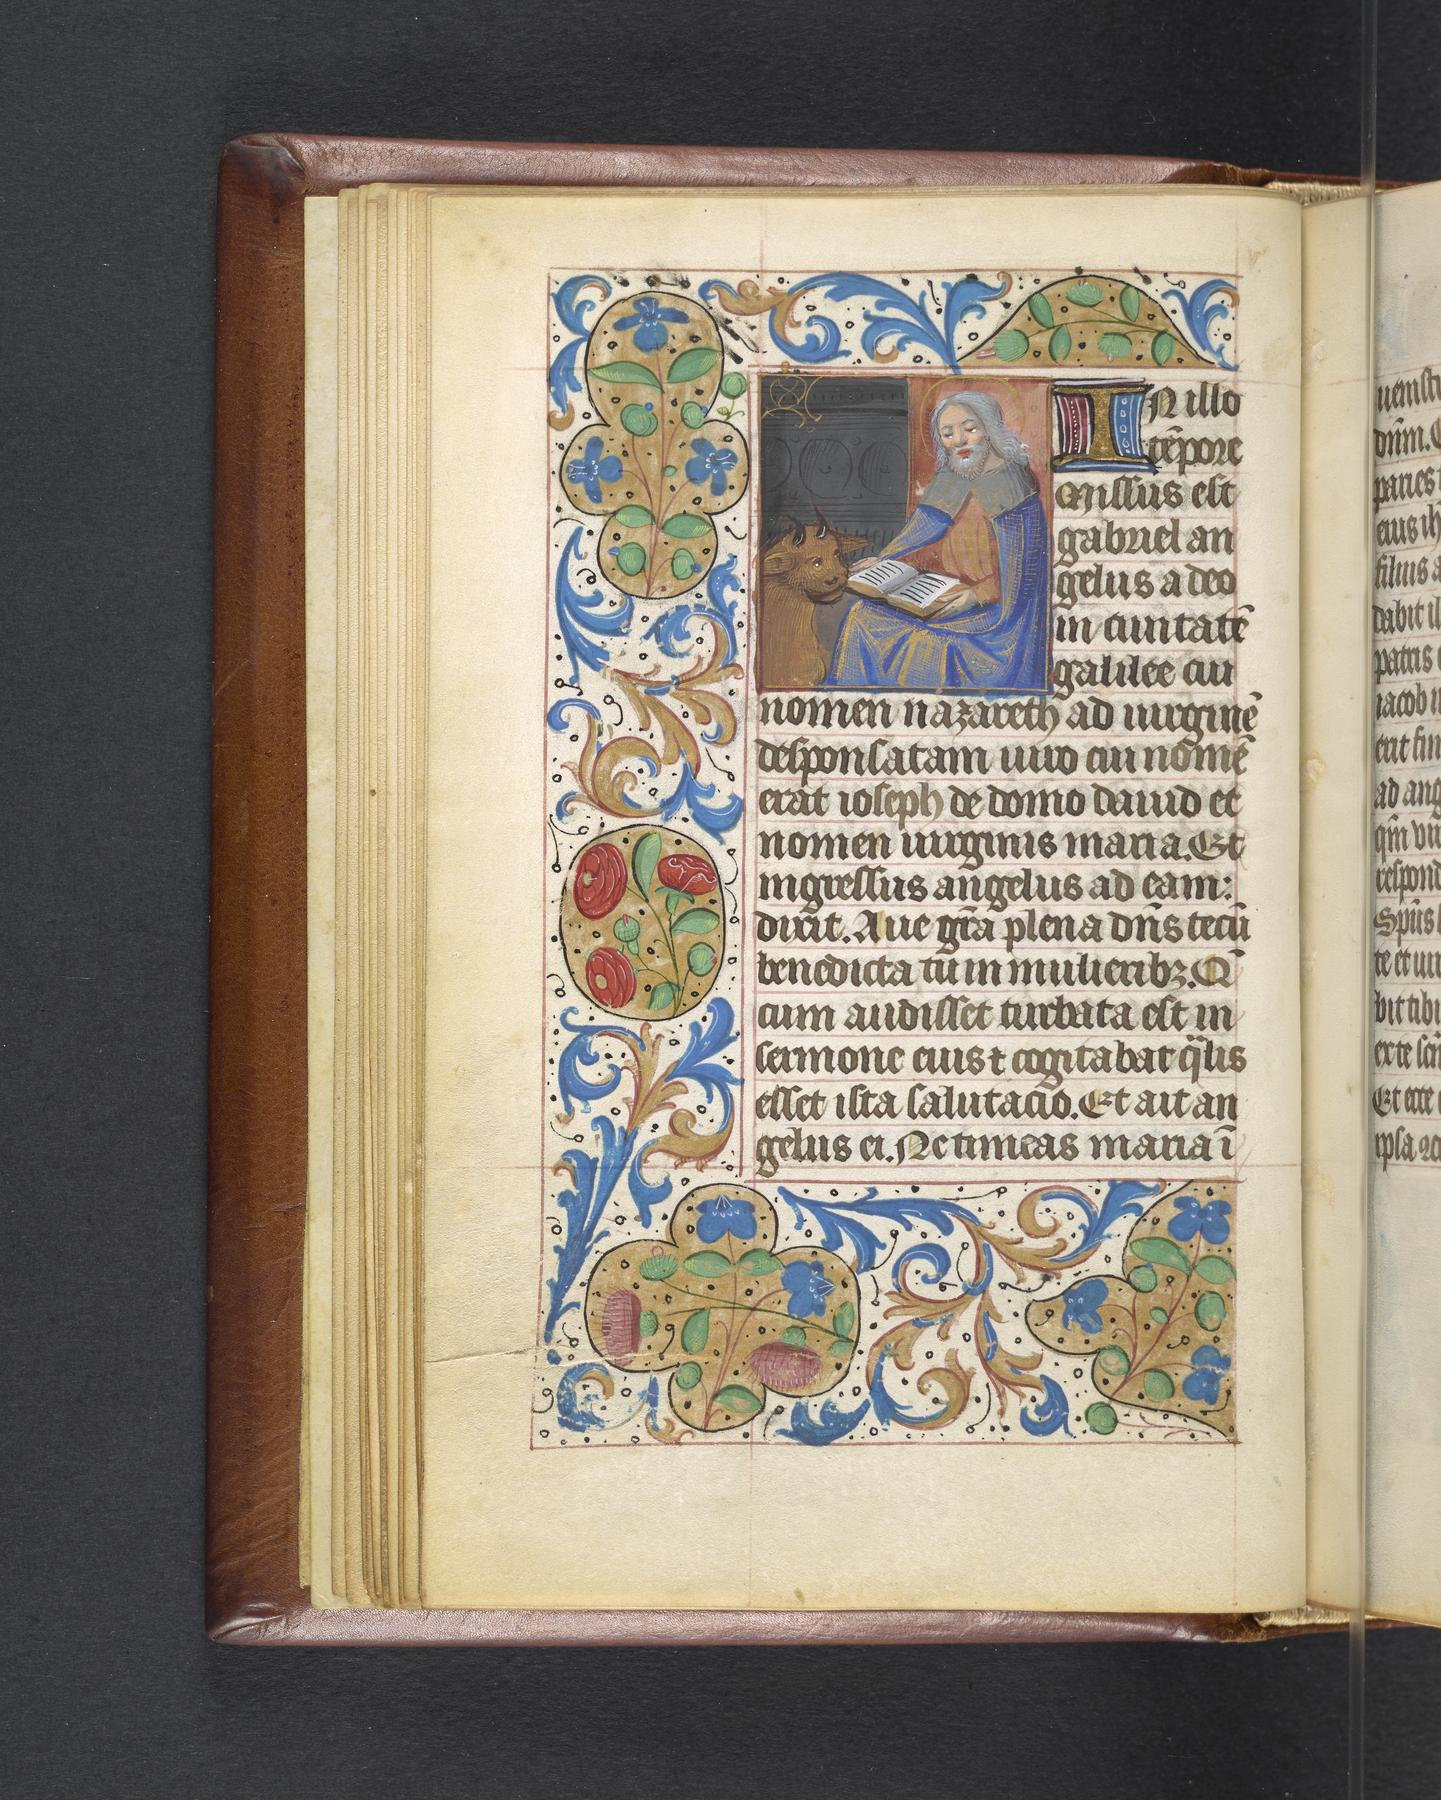 IN illo
tẽpore
missus est
gabriel an
gelus a deo
in ciuitatẽ
galilee cui
nomen nazareth ad uirginẽ
desponsatam uiro cui nomẽ
erat ioseph de domo dauid et
nomen uirginis maria. Et
ingressus angelus ad eam:
dixit. Aue grã plena dñs tecũ
benedicta tu in mulieribꝫ. Q̃
cum audisset turbata est in
sermone eius ⁊ cogitabat q̃lis
esset ista salutacio. Et ait an
gelus ei. Ne timeas maria ĩ
dñm.
paries
eius ih
filius
dabit il
patris
iacob
erit fin
ad ang
qm̃ vir
respond
Spũs
te et uir
bit tibi
Et ecce
ipsa